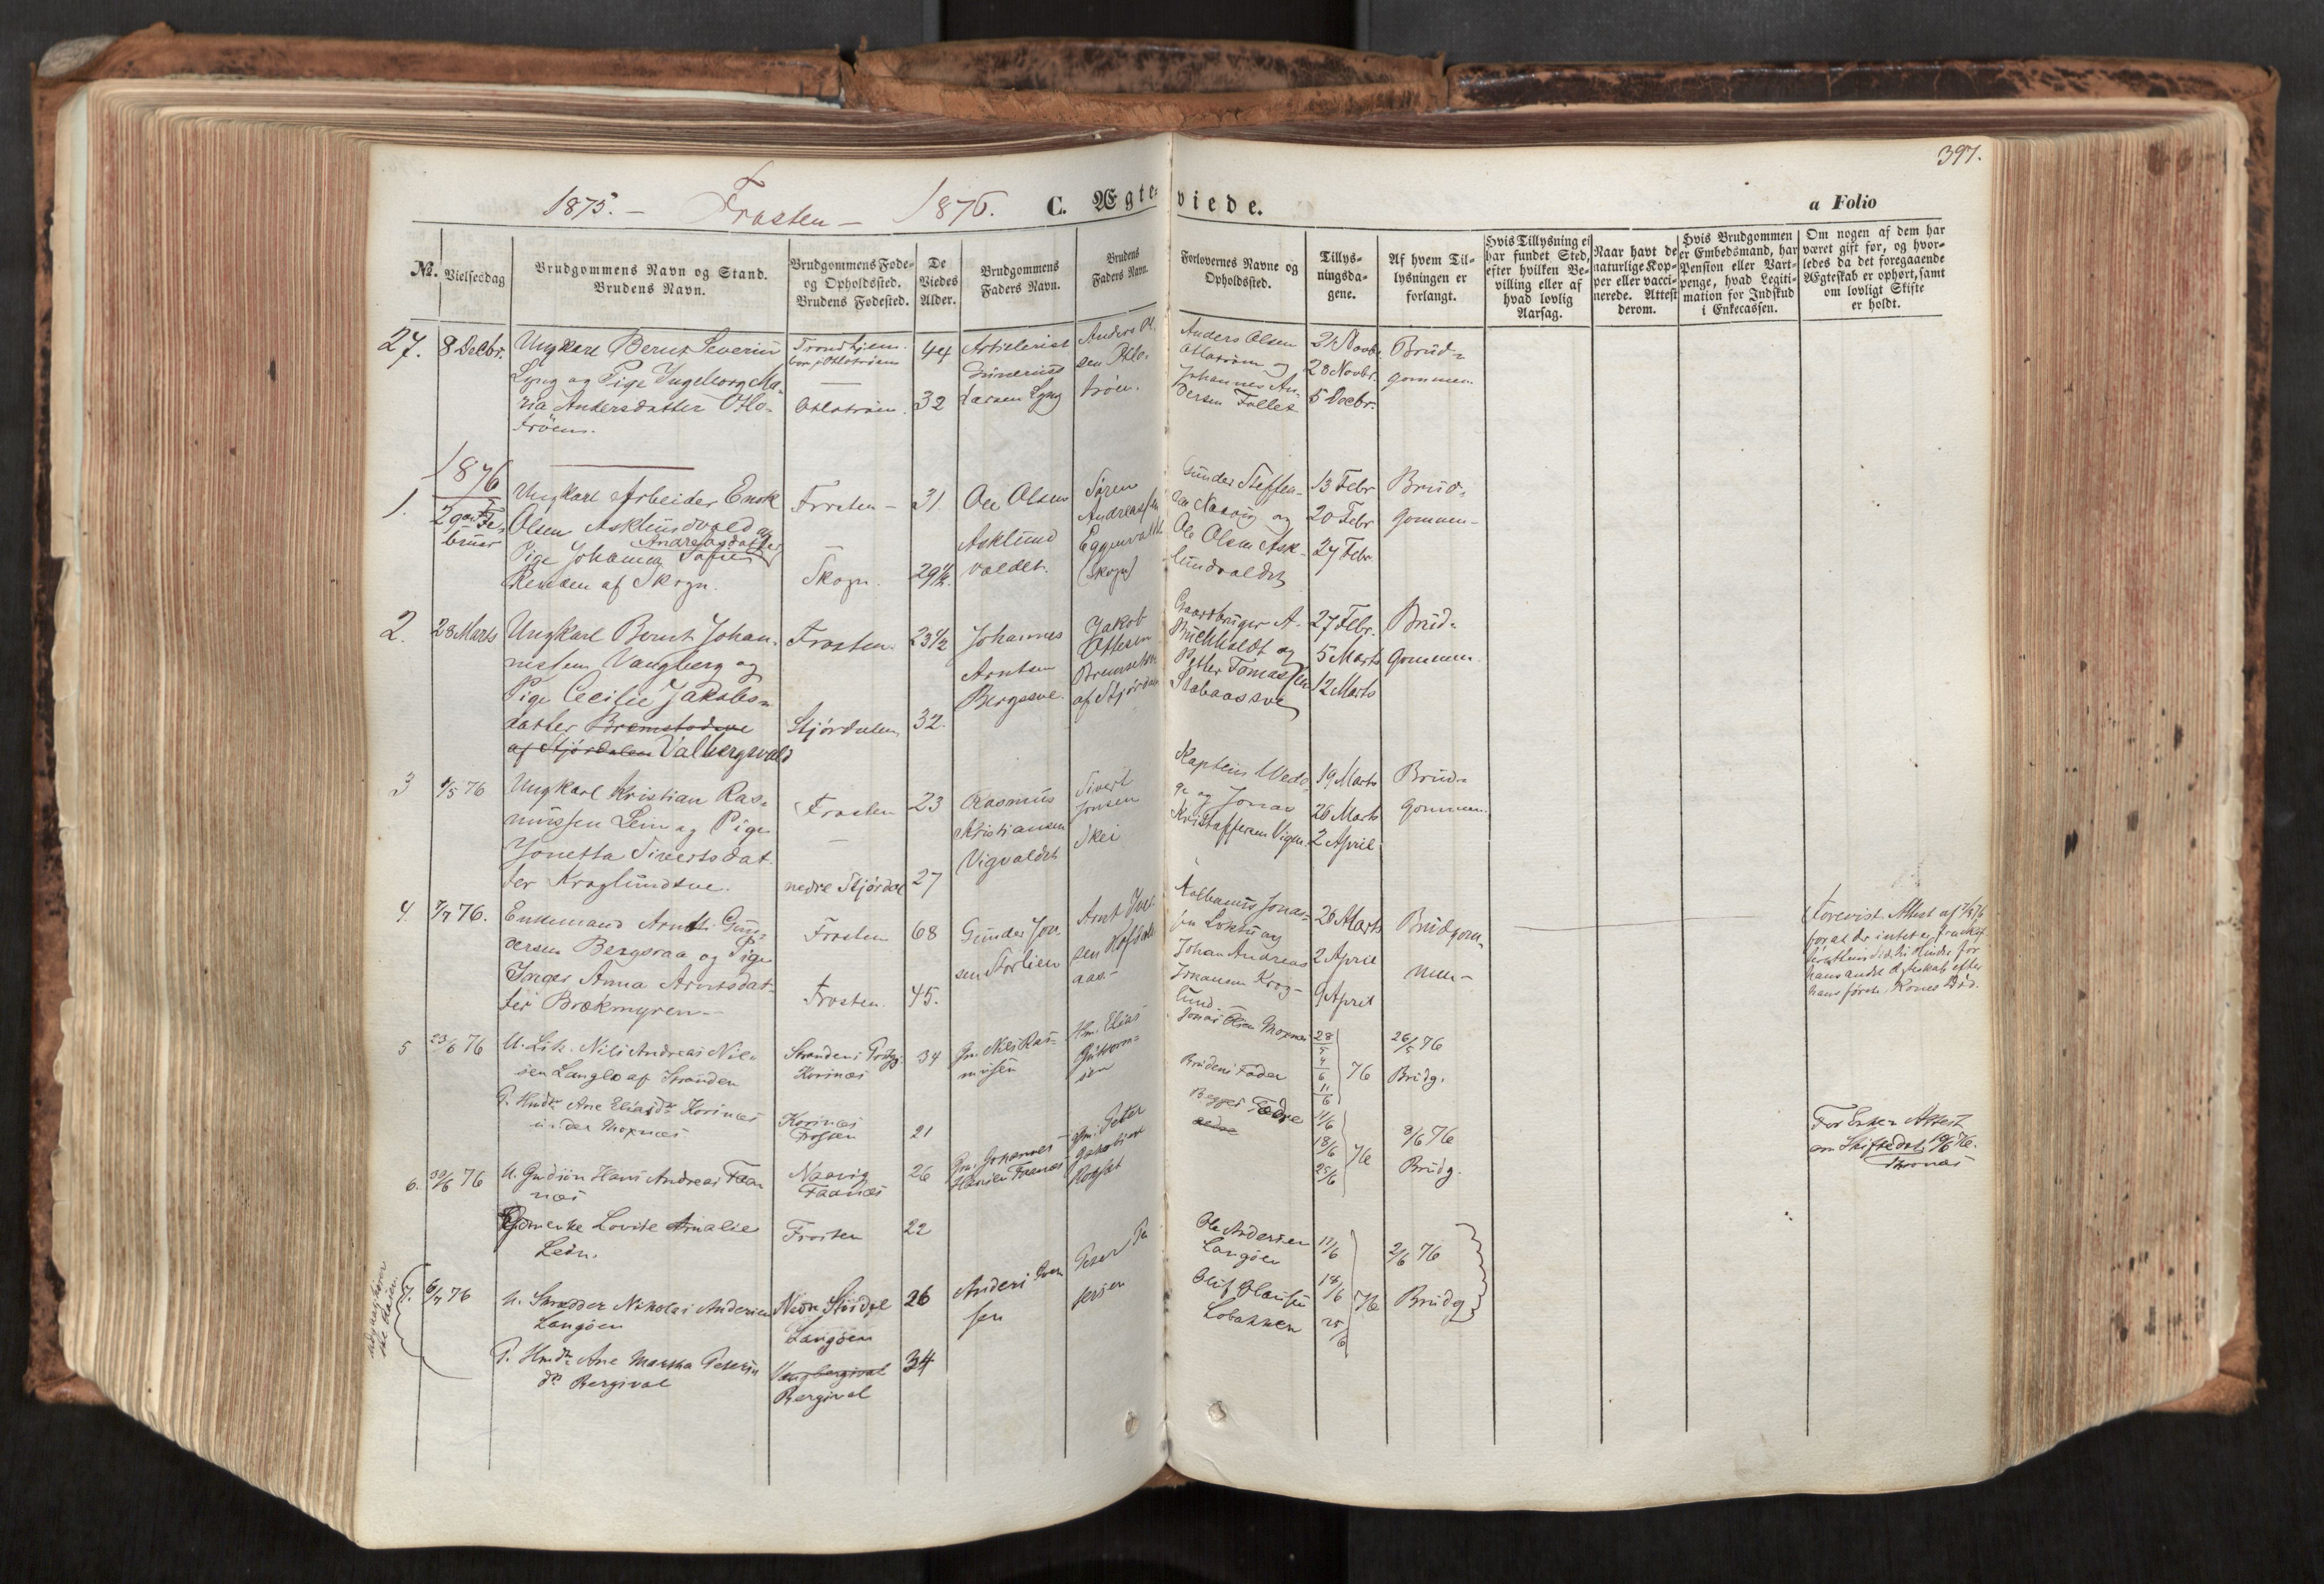 397.
1875. – Frosten – 1876. C. Ægteviede.
a Folio
No. Vielsesdag
Brudgommens Navn og Stand.
Brudens Navn.
Brudgommens Føde-
og Opholdssted.
Brudens Fødested.
De
Viedes
Alder.
Brudgommens
Faders Navn.
Brudens
Faders Navn.
Forlovernes Navne og
Opholdssted.
Tillys-
ningsda-
gene.
Af hvem Til-
lysningen er
forlangt.
Hvis Tillysning ei
har fundet Sted,
efter hvilken Be-
villing eller af
hvad lovlig
Aarsag.
Naar havt de
naturlige Kop-
per eller vacci-
nerede. Attest
derom.
Hvis Brudgommen
er Embedsmand, har
Pension eller Vart-
penge, hvad Legiti-
mation for Indskud
i Enkecassen.
Om nogen af dem har
været gift før, og hvor-
ledes da det foregaaende
Ægteskab er ophørt, samt
om lovligt Skifte
er holdt.
27. 8 Decbr.
Ungkarl Bernt Severin
Lyng og Pige Ingeborg Ma-
ria Andersdatter Otlo-
trøen.
Trondhjem
44
32
Artilerist
Larsen Lyng
Anders Ol-
sen Otlo-
trøen.
Anders Olsen
Otlotrøen og
Johannes An-
dersen Follet
21 Novbr.
28 Novbr.
5 Decbr.
Brud-
gommen
1876
1.
2den Fe-
bruar
Ungkarl Arbeider Enok
Olsen Asklundvald og
Andreasdatter
Pige Johanna Sofie
Renaen af Skogn.
Frosten –
Skogn.
31.
29½.
Ole Olsen
Asklund
valdet.
Søren
Andreassen
Eggenvaldt
(Skogn)
Gunder Steffen-
sen Naavig og
Ole Olsen Ask-
lundvaldet
13 Febr
20 Febr
27 Febr.
Brud-
gommen –
2. 28 Marts
Ungkarl Bernt Johan-
nessen Vangberg og
Pige Cecilie Jakobs-
datter Bremstadsve
af Stjørdalen Valbergsvald
Frosten.
Stjørdalen
23½
32.
Johannes
Arntsen
Bergssve.
Jakob
Ottesen
af Stjørdalen
Gaardbruger A.
Buchholdt og
Petter Tomassen
Stabaassve
27 Febr.
5 Marts
12 Marts
Brud-
gommen.
3 1/5 76
Ungkarl Kristian Ras-
mussen Lein og Pige
Jonetta Sivertsdat-
ter Kroglundsve.
Frosten
nedre Stjørdal
23
27
Rasmus
Kristiansen
Vigvaldet
Sivert
Jonsen
Skei
Kaptein Wede-
ge og Jonas
Kristoffersen Vigen.
19 Marts
26 Marts
2 April
Brud-
gommen.
4. 7/7 76.
Enkemand Arnt Gun-
dersen Bergsraa og Pige
Inger Anna Arntsdat-
ter Brækmyren –
Frosten
Frosten.
68
45.
Gunder Jon-
sen Storlien
Arnt Iver-
aas –
Johan Andreas
Jonassen Krog-
lund.
26 Marts
2 April
9 April
Brudgom-
men –
Forevist Attest af
hans første Kones Død.
5 23/6 76
U. Lsk. Nils Andreas Nil-
sen Langlo af Stranden
P. Hmdr. Ane Eliasdr. Korsnæs
under Moxnæs
Korsnæs
Korsnæs
Frosten
34
21
Gm. Nils Ras-
mussen
Hm. Elias
Jonas Olsen Moxnæs
Brudens Fader
28/5
4/6
11/6
76
26/5 76
Brudg.
6. 30/6 76
U. Gmdsøn Hans Andreas Faa-
næs
Gdmenke Lovise Amalie
Lein.
Naavig
Faanæs
Frosten
26
22
Gm. Johannes
Hansen Faanæs
Gm. Peter
Jakobsen
Begges Fædre
11/6
18/6
25/6
76
8/6 76
Brudg.
For Enken Attest
om Skifte dat. 10/6 76.
7. 6/7 76
U. Skrædder Nikolai Andersen
Langøen
P. Hmdr. Ane Martha Peters-
dr. Bergsval
Nedre Stjørdal
Langøen
Vangbergsval
Bergsval
26
34
Anders Iver-
sen
Peter Pe-
tersen
Ole Andersen
Langøen
Oluf Olausen
Lobakken
11/6
18/6
25/6
76
2/6 76
Brudg